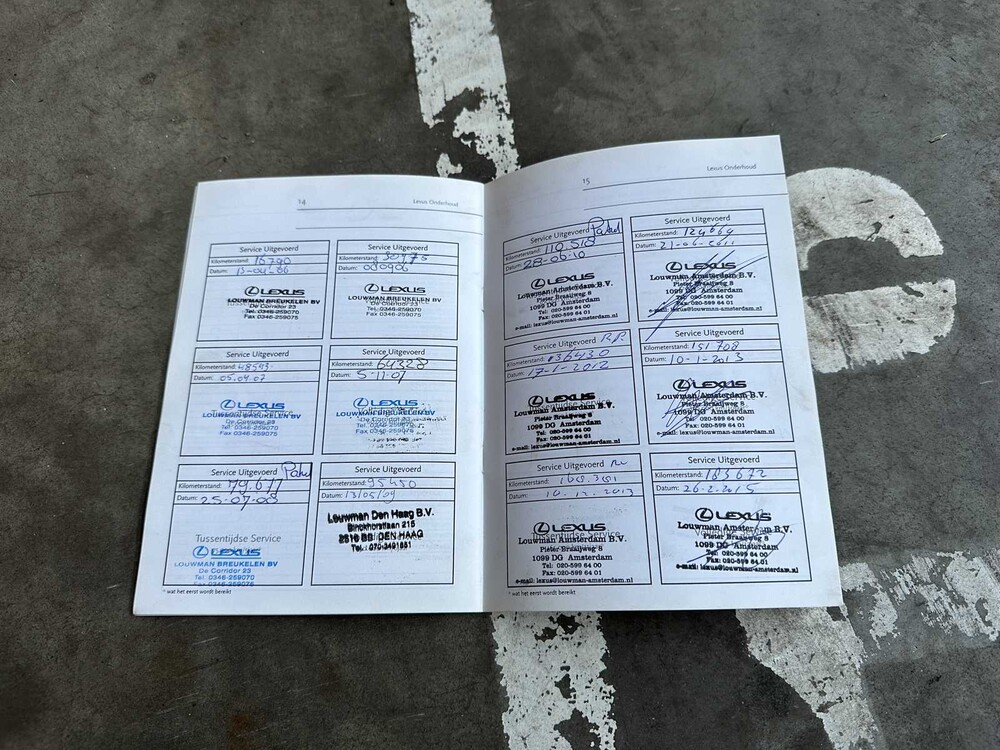 14
Lexus Onderhoud
Service Uitgevoerd
Kilometerstand: 16790
Datum:
LEXUS
LOUWMAN BREUKELEN BV
De Corridor 23
Tel. 0346-259070
Fax 0346-259075
Service Uitgevoerd
Kilometerstand: 30975
Datum: 080906
LEXUS
LOUWMAN BREUKELEN BV
De Corridor 23
Tel. 0346-259070
Fax 0346-259075
Service Uitgevoerd
Kilometerstand: 48593
Datum: 05.04.07
LEXUS
LOUWMAN BREUKELEN BV
De Corridor 23
Tel. 0346-259070
Fax 0346-259075
Service Uitgevoerd
Kilometerstand: 64328
Datum: 5-11-07
LEXUS
LOUWMAN BREUKELEN BV
Service Uitgevoerd
Kilometerstand: 79.677
Datum: 25-07-08
Tussentijdse Service
LEXUS
LOUWMAN BREUKELEN BV
De Corridor 23
Tel. 0346-259070
Fax 0346-259075
Service Uitgevoerd
Kilometerstand: 95450
Datum: 13/05/09
Louwman Den Haag B.V.
Binckhorstlaan 215
2516 BB DEN HAAG
Tel.: 070-3491651
* wat het eerst wordt bereikt
15
Lexus Onderhoud
Service Uitgevoerd
Kilometerstand: 110.518
Datum: 28-06-10
LEXUS
Louwman Amsterdam B.V.
Pieter Braaijweg 8
1099 DG Amsterdam
Tel: 020-599 64 00
Fax: 020-599 64 01
e-mail: lexus@louwman-amsterdam.nl
Service Uitgevoerd
Kilometerstand: 124664
Datum: 21-06-2011
LEXUS
Louwman Amsterdam B.V.
Pieter Braaijweg 8
1099 DG Amsterdam
Tel: 020-599 64 00
Fax: 020-599 64 01
e-mail: lexus@louwman-amsterdam.nl
Service Uitgevoerd
Kilometerstand: 136430
Datum: 17-1-2012
LEXUS
Louwman Amsterdam B.V.
Pieter Braaijweg 8
1099 DG Amsterdam
Tel: 020-599 64 00
Fax: 020-599 64 01
e-mail: lexus@louwman-amsterdam.nl
Service Uitgevoerd
Kilometerstand: 151708
Datum: 10-1-2013
LEXUS
Louwman Amsterdam B.V.
Pieter Braaijweg 8
1099 DG Amsterdam
Tel: 020-599 64 00
Fax: 020-599 64 01
e-mail: lexus@louwman-amsterdam.nl
Service Uitgevoerd
Kilometerstand:
Datum: 10.12.2013
LEXUS
Louwman Amsterdam B.V.
Pieter Braaijweg 8
1099 DG Amsterdam
Tel: 020-599 64 00
Fax: 020-599 64 01
e-mail: lexus@louwman-amsterdam.nl
Service Uitgevoerd
Kilometerstand: 183672
Datum: 26-2-2015
LEXUS
Louwman Amsterdam B.V.
Pieter Braaijweg 8
1099 DG Amsterdam
Tel: 020-599 64 00
Fax: 020-599 64 01
e-mail: lexus@louwman-amsterdam.nl
* wat het eerst wordt bereikt